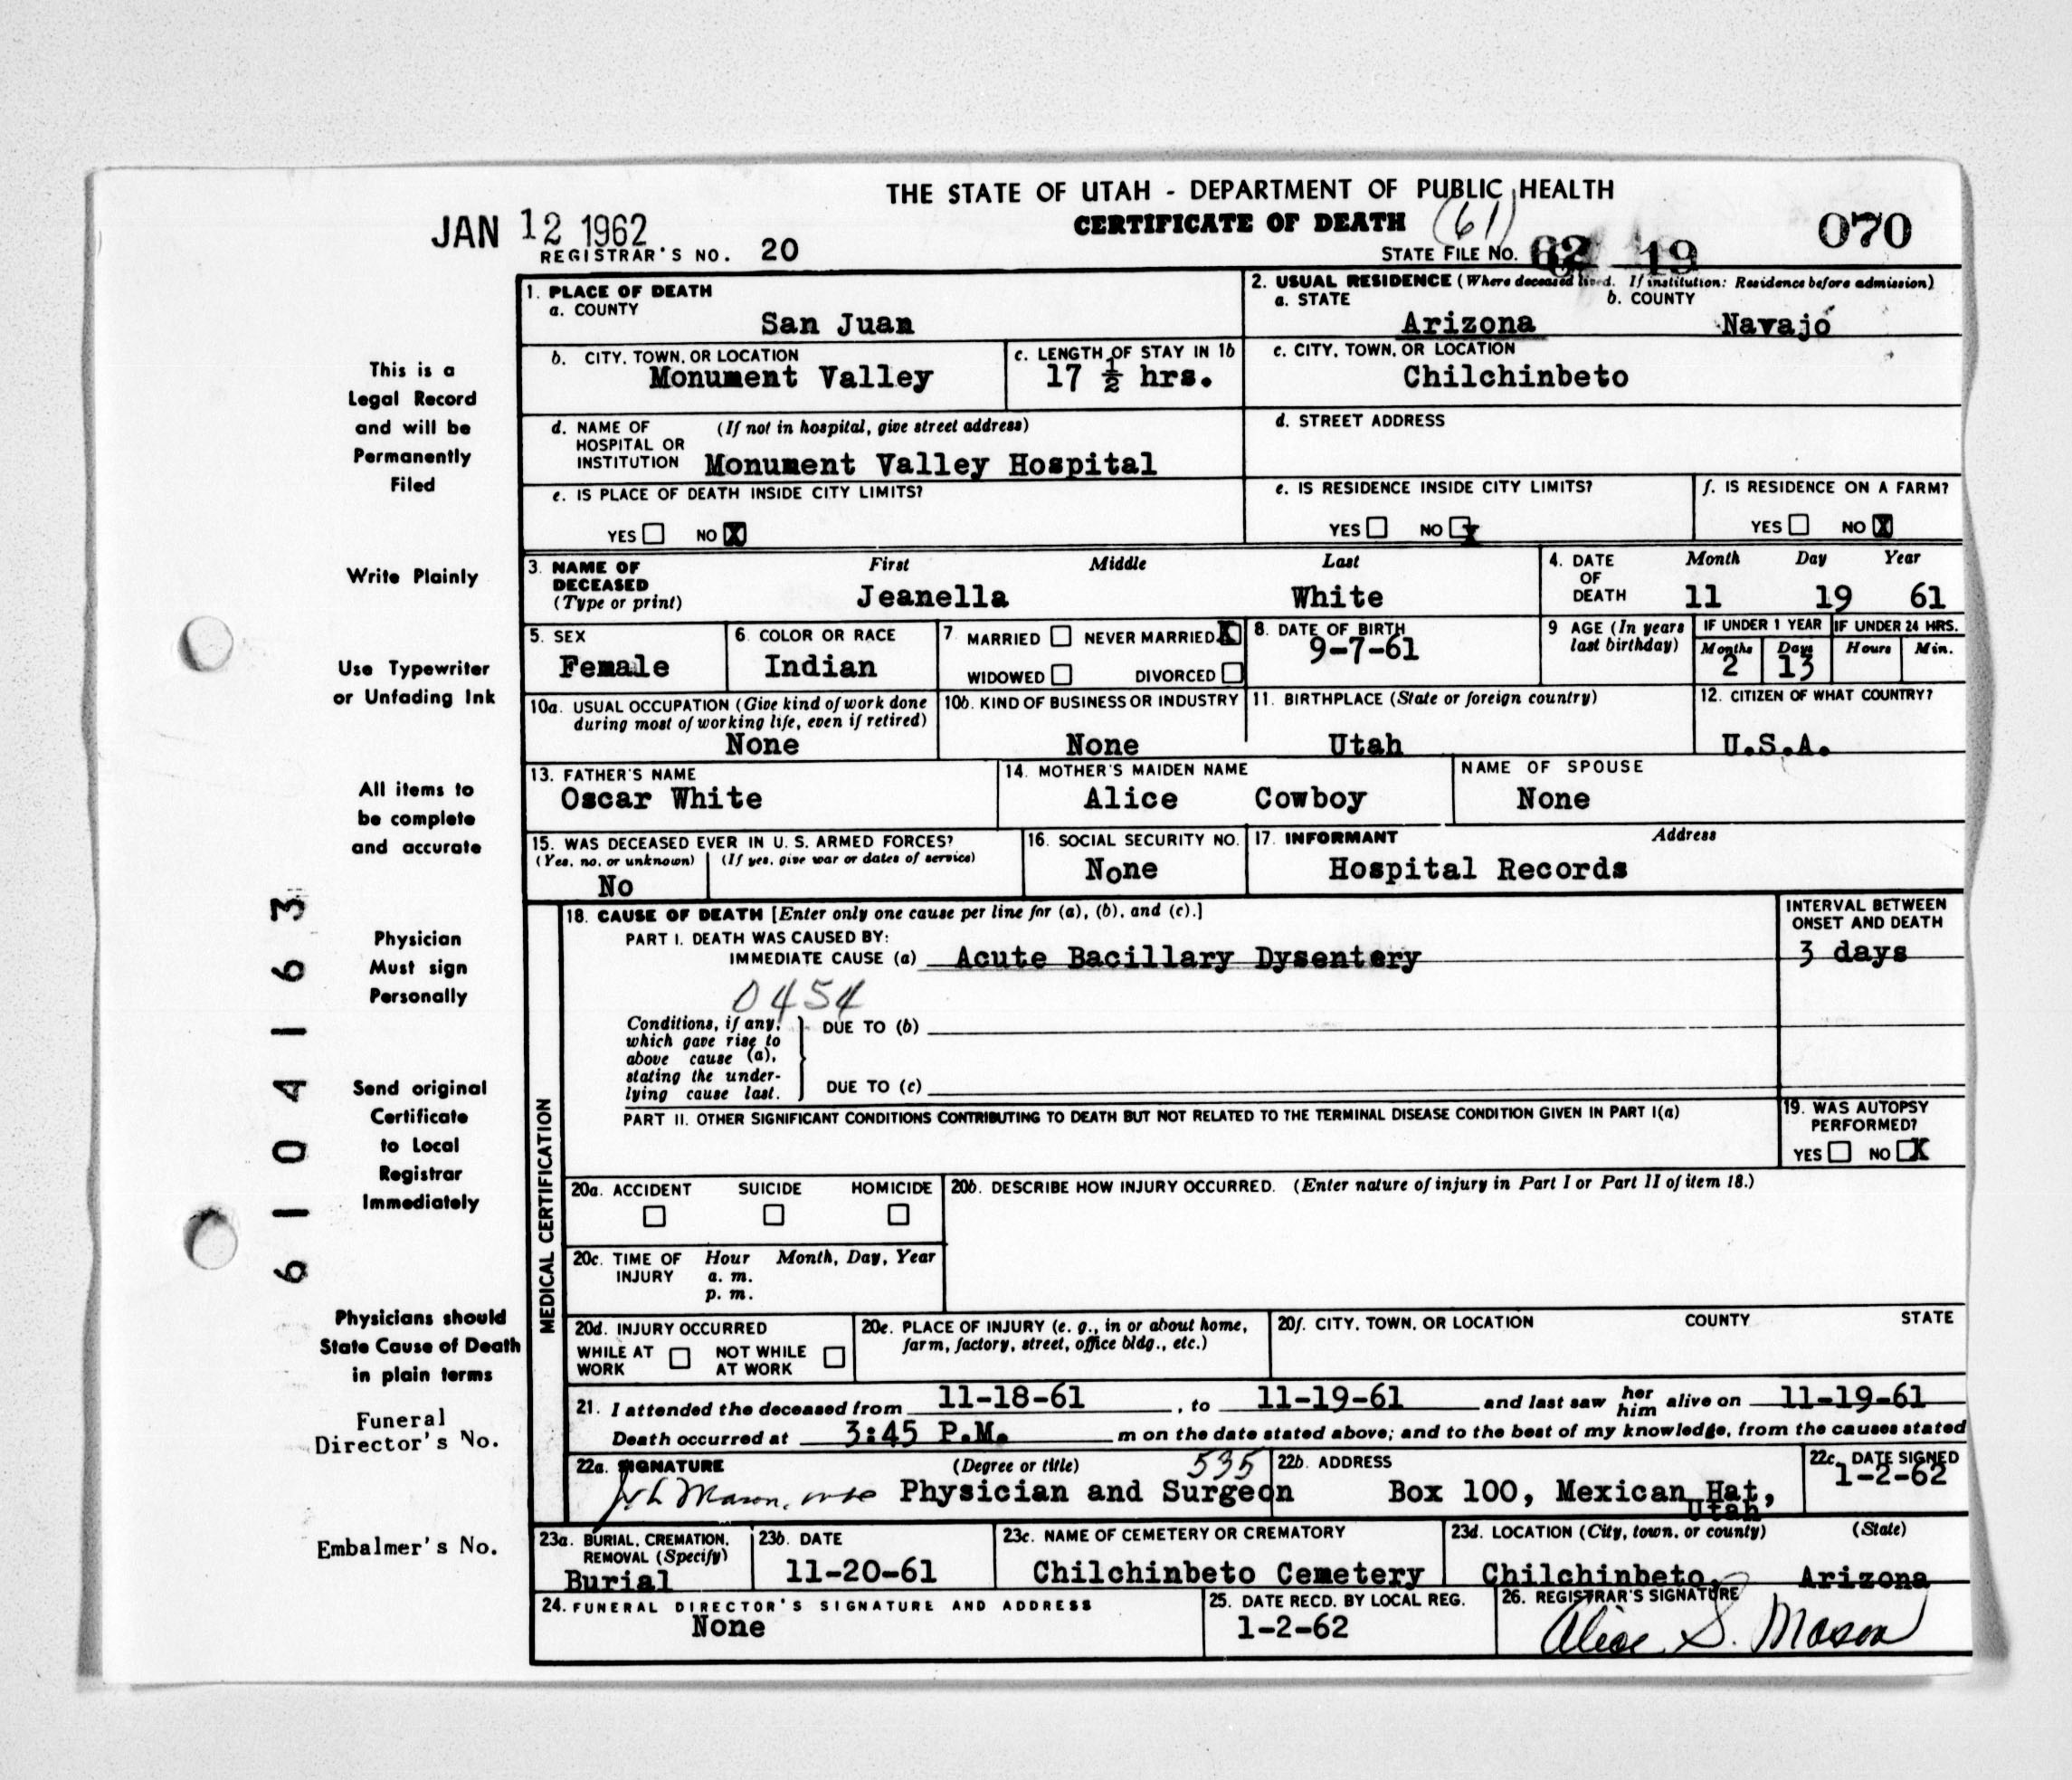 THE STATE OF UTAH - DEPARTMENT OF PUBLIC HEALTH
JAN 12 1962
CERTIFICATE OF DEATH (61)
070
REGISTRAR'S NO. 20
STATE FILE NO. 62 19
1. PLACE OF DEATH
a. COUNTY
San Juan
2. USUAL RESIDENCE (Where deceased lived. If institution: Residence before admission)
a. STATE b. COUNTY
Arizona Navajo
b. CITY, TOWN, OR LOCATION
Monument Valley
c. LENGTH OF STAY IN 1b
17 ½ hrs.
c. CITY, TOWN, OR LOCATION
Chilchinbeto
d. NAME OF (If not in hospital, give street address)
HOSPITAL OR
INSTITUTION Monument Valley Hospital
d. STREET ADDRESS
e. IS PLACE OF DEATH INSIDE CITY LIMITS?
YES NO X
e. IS RESIDENCE INSIDE CITY LIMITS?
YES NO X
f. IS RESIDENCE ON A FARM?
YES NO X
3. NAME OF DECEASED
(Type or print)
First Middle Last
Jeanella White
4. DATE OF DEATH
Month Day Year
11 19 61
5. SEX
Female
6. COLOR OR RACE
Indian
7. MARRIED NEVER MARRIED X
WIDOWED DIVORCED
8. DATE OF BIRTH
9-7-61
9 AGE (In years
last birthday)
IF UNDER 1 YEAR
Months Days
2 13
IF UNDER 24 HRS.
Hours Min.
10a. USUAL OCCUPATION (Give kind of work done
during most of working life, even if retired)
None
10b. KIND OF BUSINESS OR INDUSTRY
None
11. BIRTHPLACE (State or foreign country)
Utah
12. CITIZEN OF WHAT COUNTRY?
U.S.A.
13. FATHER'S NAME
Oscar White
14. MOTHER'S MAIDEN NAME
Alice Cowboy
NAME OF SPOUSE
None
15. WAS DECEASED EVER IN U. S. ARMED FORCES?
(Yes, no, or unknown) (If yes, give war or dates of service)
No
16. SOCIAL SECURITY NO.
None
17. INFORMANT Address
Hospital Records
MEDICAL CERTIFICATION
18. CAUSE OF DEATH [Enter only one cause per line for (a), (b), and (c).]
PART I. DEATH WAS CAUSED BY:
IMMEDIATE CAUSE (a) Acute Bacillary Dysentery
INTERVAL BETWEEN
ONSET AND DEATH
3 days
0454
Conditions, if any,
which gave rise to
above cause (a),
stating the under-
lying cause last.
DUE TO (b)
DUE TO (c)
PART II. OTHER SIGNIFICANT CONDITIONS CONTRIBUTING TO DEATH BUT NOT RELATED TO THE TERMINAL DISEASE CONDITION GIVEN IN PART I(a)
19. WAS AUTOPSY
PERFORMED?
YES NO X
20a. ACCIDENT SUICIDE HOMICIDE
20b. DESCRIBE HOW INJURY OCCURRED. (Enter nature of injury in Part I or Part II of item 18.)
20c. TIME OF INJURY
Hour Month, Day, Year
a. m.
p. m.
20d. INJURY OCCURRED
WHILE AT WORK NOT WHILE AT WORK
20e. PLACE OF INJURY (e. g., in or about home,
farm, factory, street, office bldg., etc.)
20f. CITY, TOWN, OR LOCATION COUNTY STATE
21. I attended the deceased from 11-18-61, to 11-19-61 and last saw her him alive on 11-19-61
Death occurred at 3:45 P.M. m on the date stated above; and to the best of my knowledge, from the causes stated
22a. SIGNATURE (Degree or title) 535
Mason, Physician and Surgeon
22b. ADDRESS
Box 100, Mexican Hat,
Utah
22c. DATE SIGNED
1-2-62
23a. BURIAL, CREMATION,
REMOVAL (Specify)
Burial
23b. DATE
11-20-61
23c. NAME OF CEMETERY OR CREMATORY
Chilchinbeto Cemetery
23d. LOCATION (City, town, or county) (State)
Chilchinbeto, Arizona
24. FUNERAL DIRECTOR'S SIGNATURE AND ADDRESS
None
25. DATE RECD. BY LOCAL REG.
1-2-62
26. REGISTRAR'S SIGNATURE
Alice S. Mason
This is a
Legal Record
and will be
Permanently
Filed
Write Plainly
Use Typewriter
or Unfading Ink
All items to
be complete
and accurate
Physician
Must sign
Personally
Send original
Certificate
to Local
Registrar
Immediately
Physicians should
State Cause of Death
in plain terms
Funeral
Director's No.
Embalmer's No.
6104163